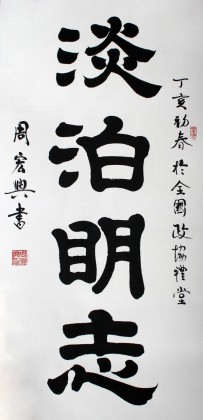 淡泊明志
丁亥初春於全國政協禮堂
周宏興書